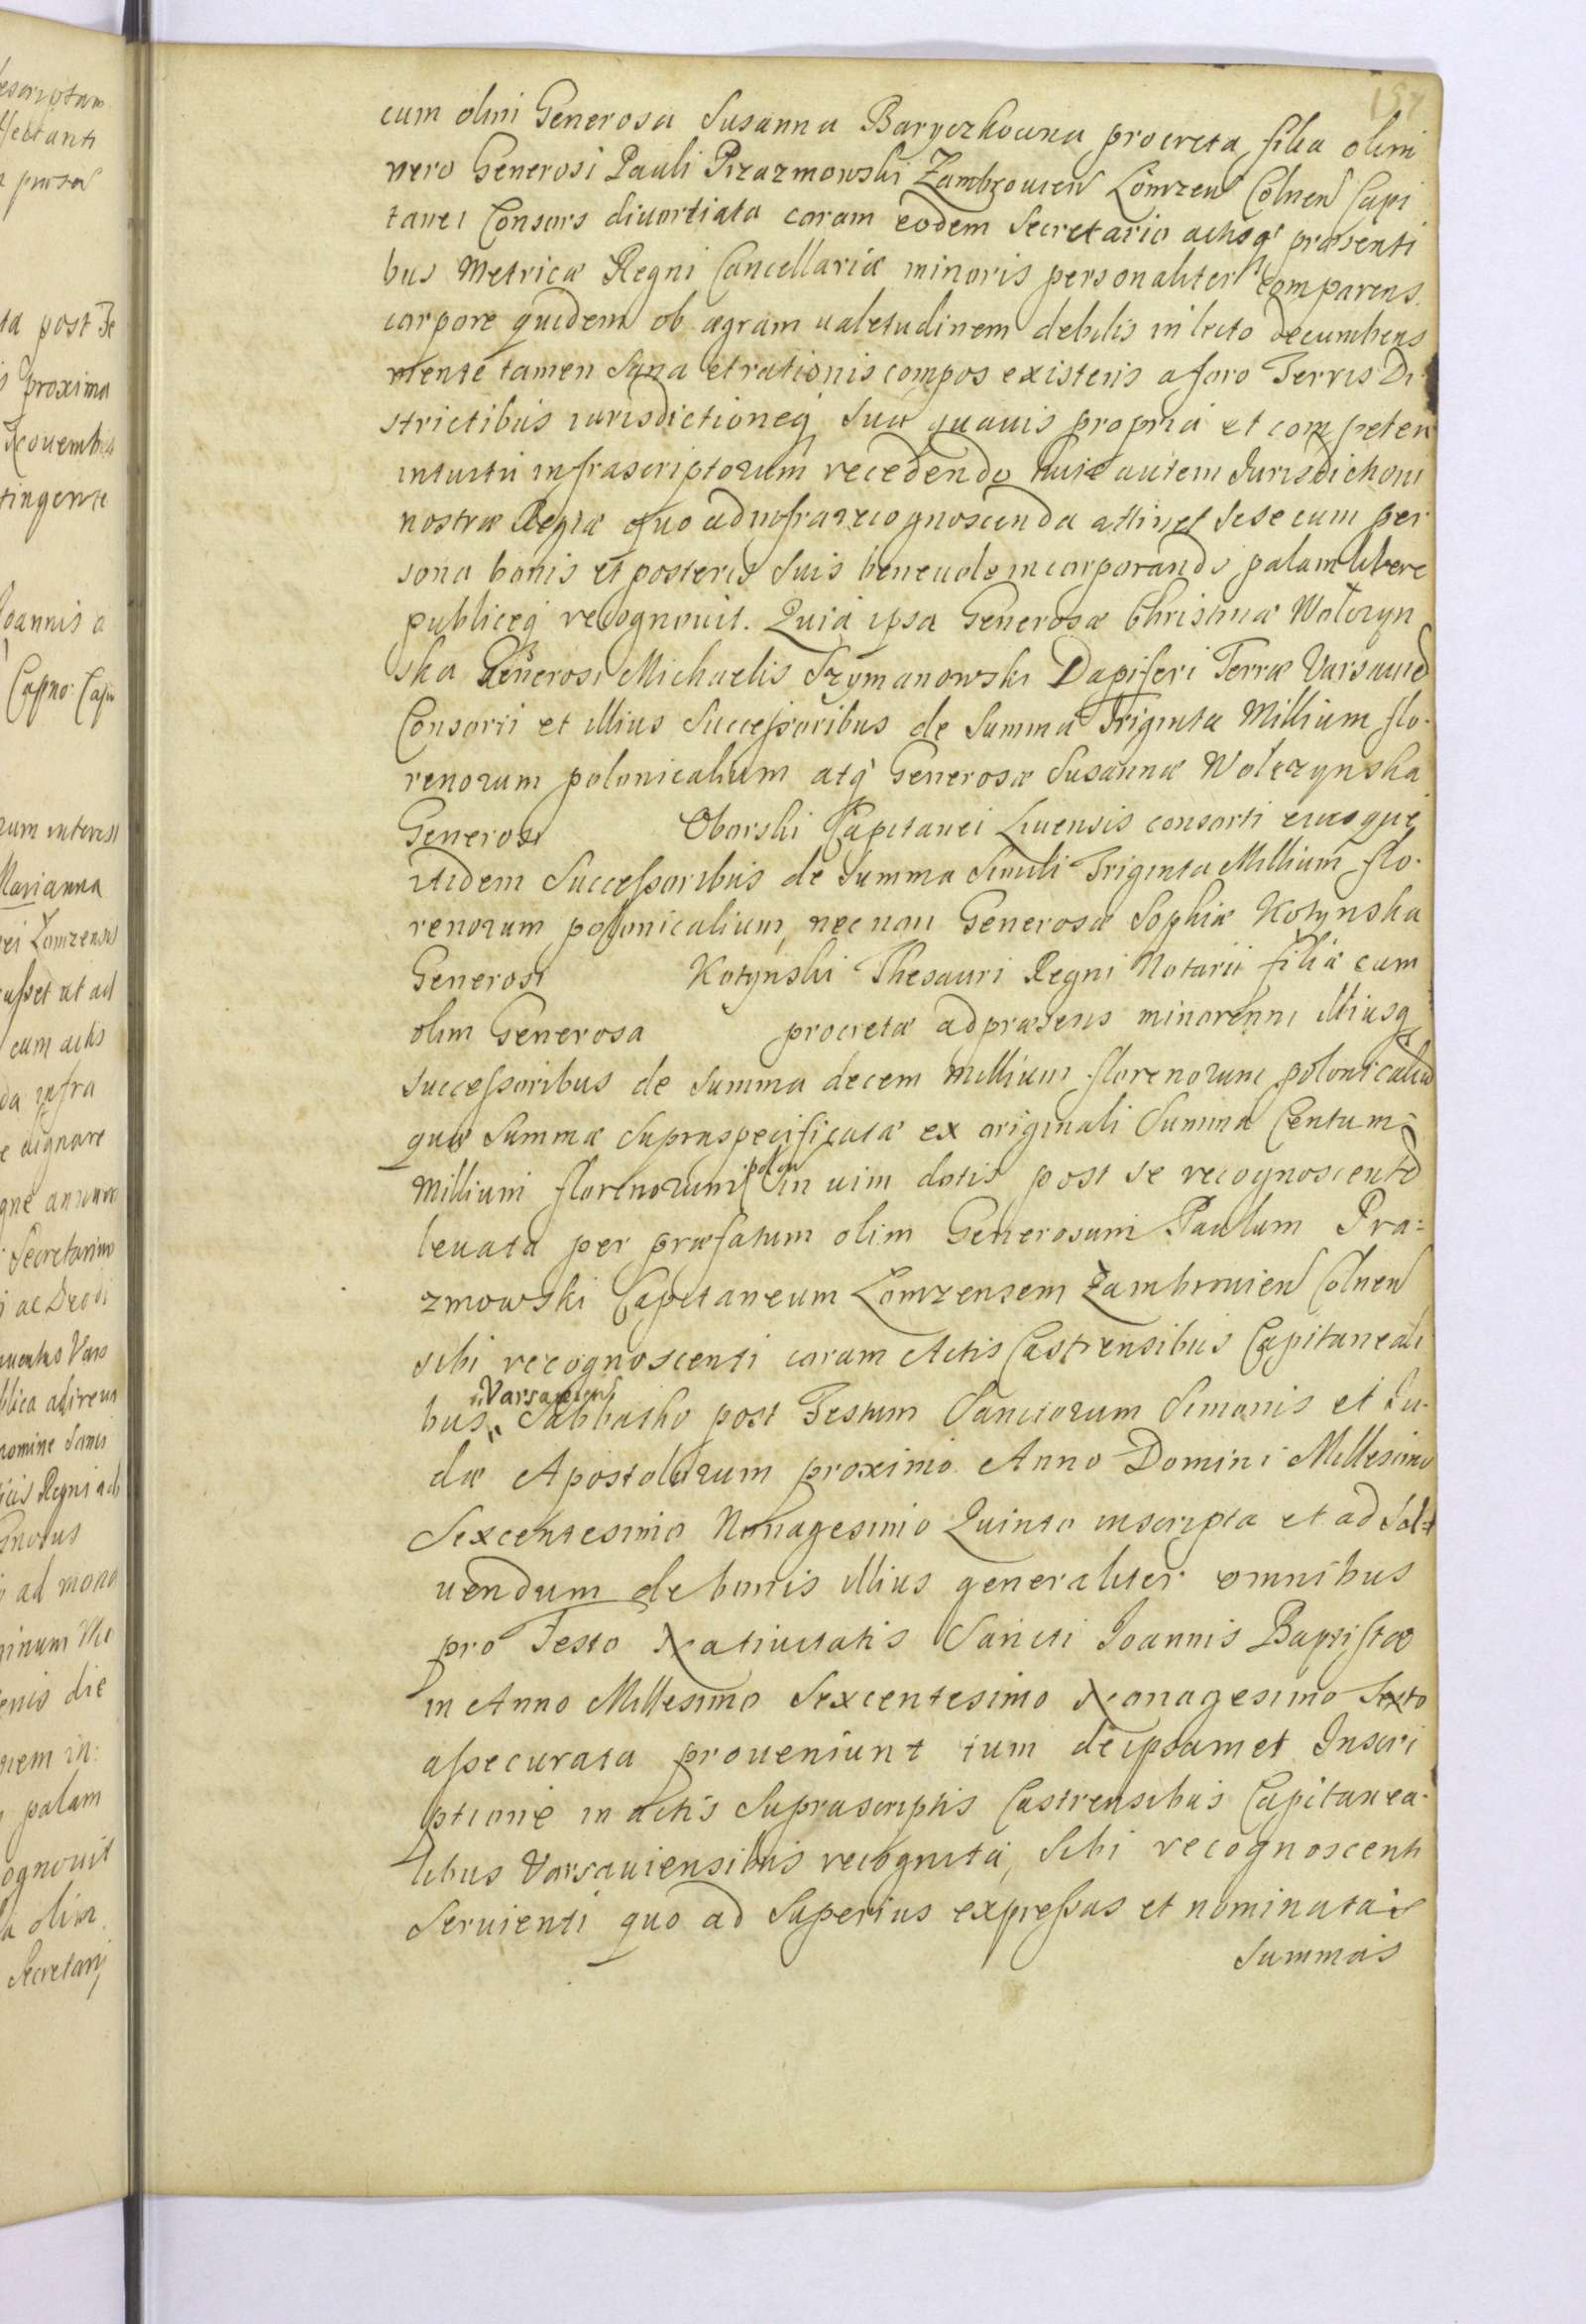 157
cum olim Generosa Susanna Baryczkowna procreta, filia olim
vero Generosi Pauli Prazmowski Zambrovien Lomzen Colnen Capi
tanei Consors divortiata coram eodem Secretario actisq præsenti
bus Metricæ Regni Cancellariæ minoris personaliter comparens
corpore quidem ob ægram valetudinem debilis in lecto decumbens
mente tamen sana et rationis compos existens a foro Terris Di
strictibus iurisdictioneq sua quavis propria et competen
intuitu infrascriptorum recedendo huic autem Jurisdictioni
nostræ Regiæ quo ad infra recognoscenda attinet sese cum per
sona bonis et posteris suis benevole incorporando palam libere
publiceq recognovit. Quia ipsa Generosæ Christinæ Wolczyn
ska Generosi Michaelis Szymanowski Dapiferi Terræ Varsavien
Consorti et illius Successoribus de Summa Triginta Millium flo-
renorum polonicalium atq Generosæ Susannæ Wolczynska
Generosi Oborski Capitanei Livensis consorti eiusque
itidem Successoribus de Summa simili Triginta Millium flo-
renorum polonicalium, nec non Generosæ Sophiæ Kotynska
Generosi Kotynski Thesauri Regni Notarii filiæ cum
olim Generosa procretæ ad præsens minorenni illiusq
successoribus de summa decem millium florenorum polonicaliu
quæ Summæ supraspecificatæ ex originali Summa Centum
Millium florenorum polon in vim dotis post se recognoscente
levata per præfatum olim Generosum Paulum Pra=
zmowski Capitaneum Lomzensem Zambrovien Colnen
sibi recognoscenti coram Actis Castrensibus Capitaneali
bus Varsavien Sabbatho post Festum Sanctorum Simonis et Ju-
dæ Apostolorum proximo Anno Domini Millesimo
Sexcentesimo Nonagesimo Quinto inscripta et ad sol=
vendum de bonis illius generaliter omnibus
pro Festo Nativitatis Sancti Joannis Baptistæ
in Anno Millesimo Sexcentesimo Nonagesimo Sexto
assecurata proveniunt tum de ipsamet Inscri
ptione in actis suprascriptis Castrensibus Capitanea-
libus Varsaviensibus recognita, sibi recognoscenti
servienti quo ad superius expressas et nominatas
summas